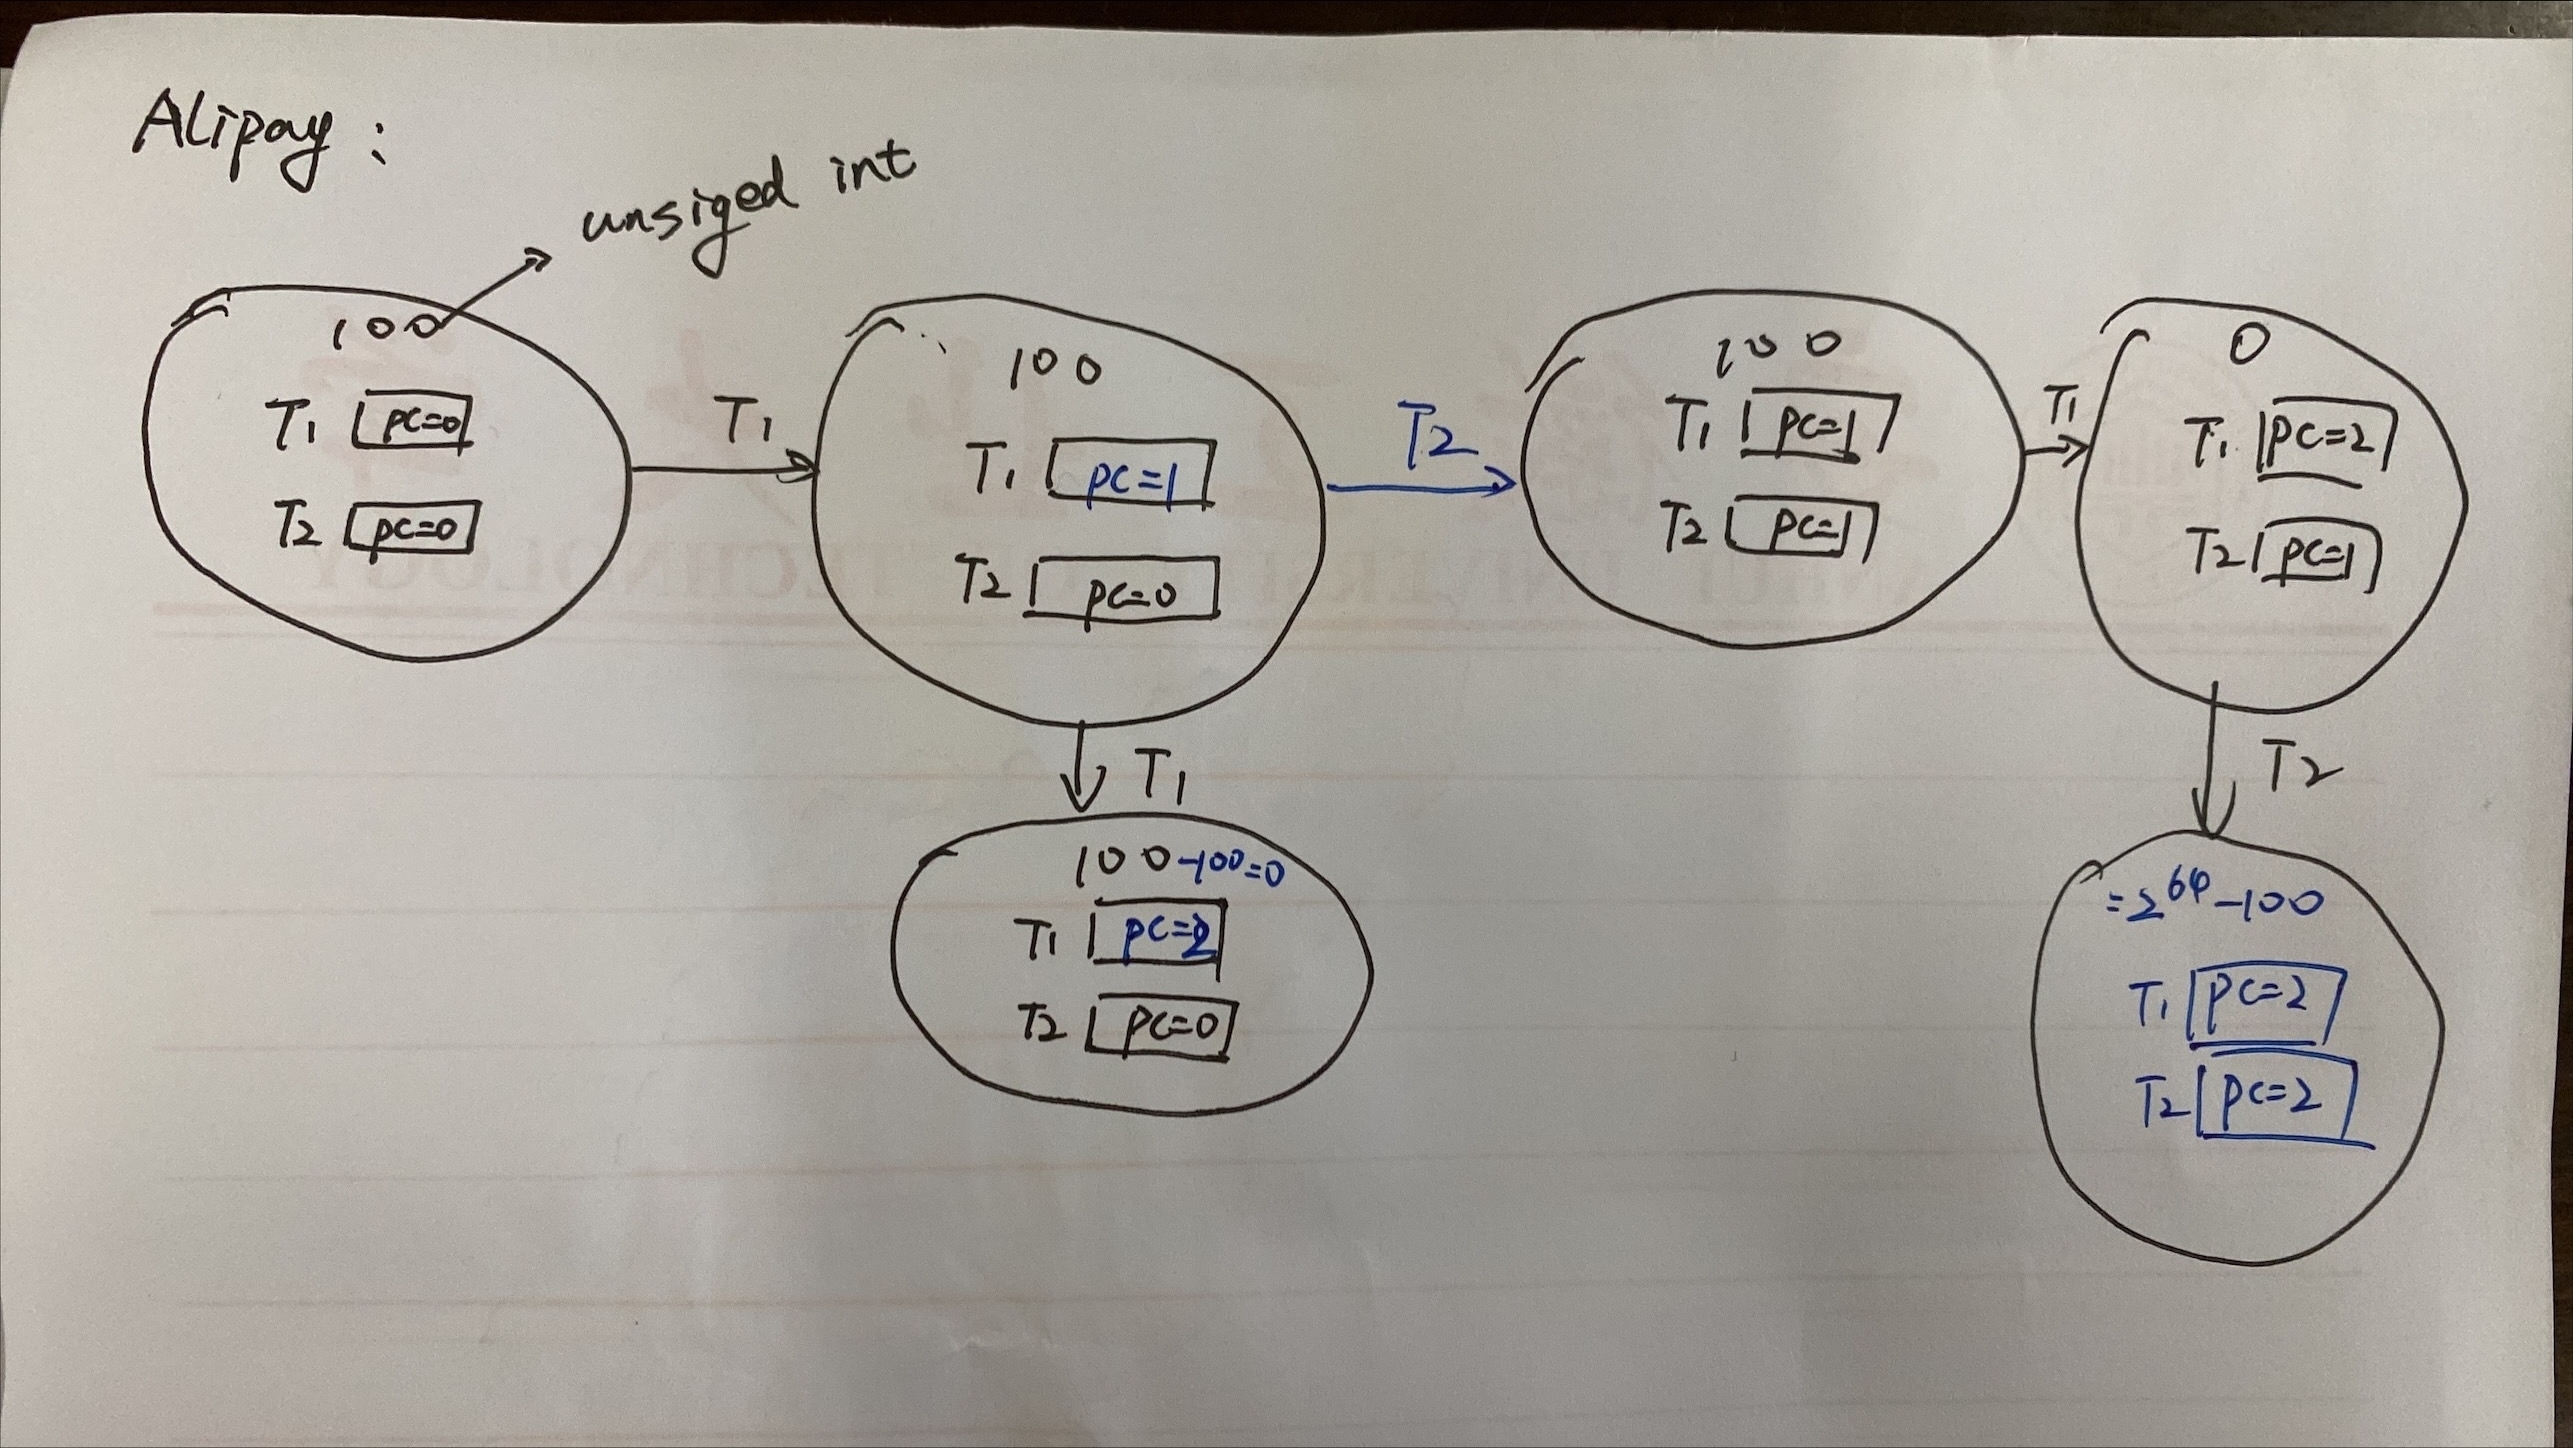 ALipay :
unsiged int
100
T1 pc=0
T2 pc=0
T1
100
T1 pc=1
T2 pc=0
T2
100
T1 pc=1
T2 pc=1
T1
0
T1 pc=2
T2 pc=1
T1
100-100=0
T1 pc=2
T2 pc=0
T2
=2^64-100
T1 pc=2
T2 pc=2
TECHNOLOGY